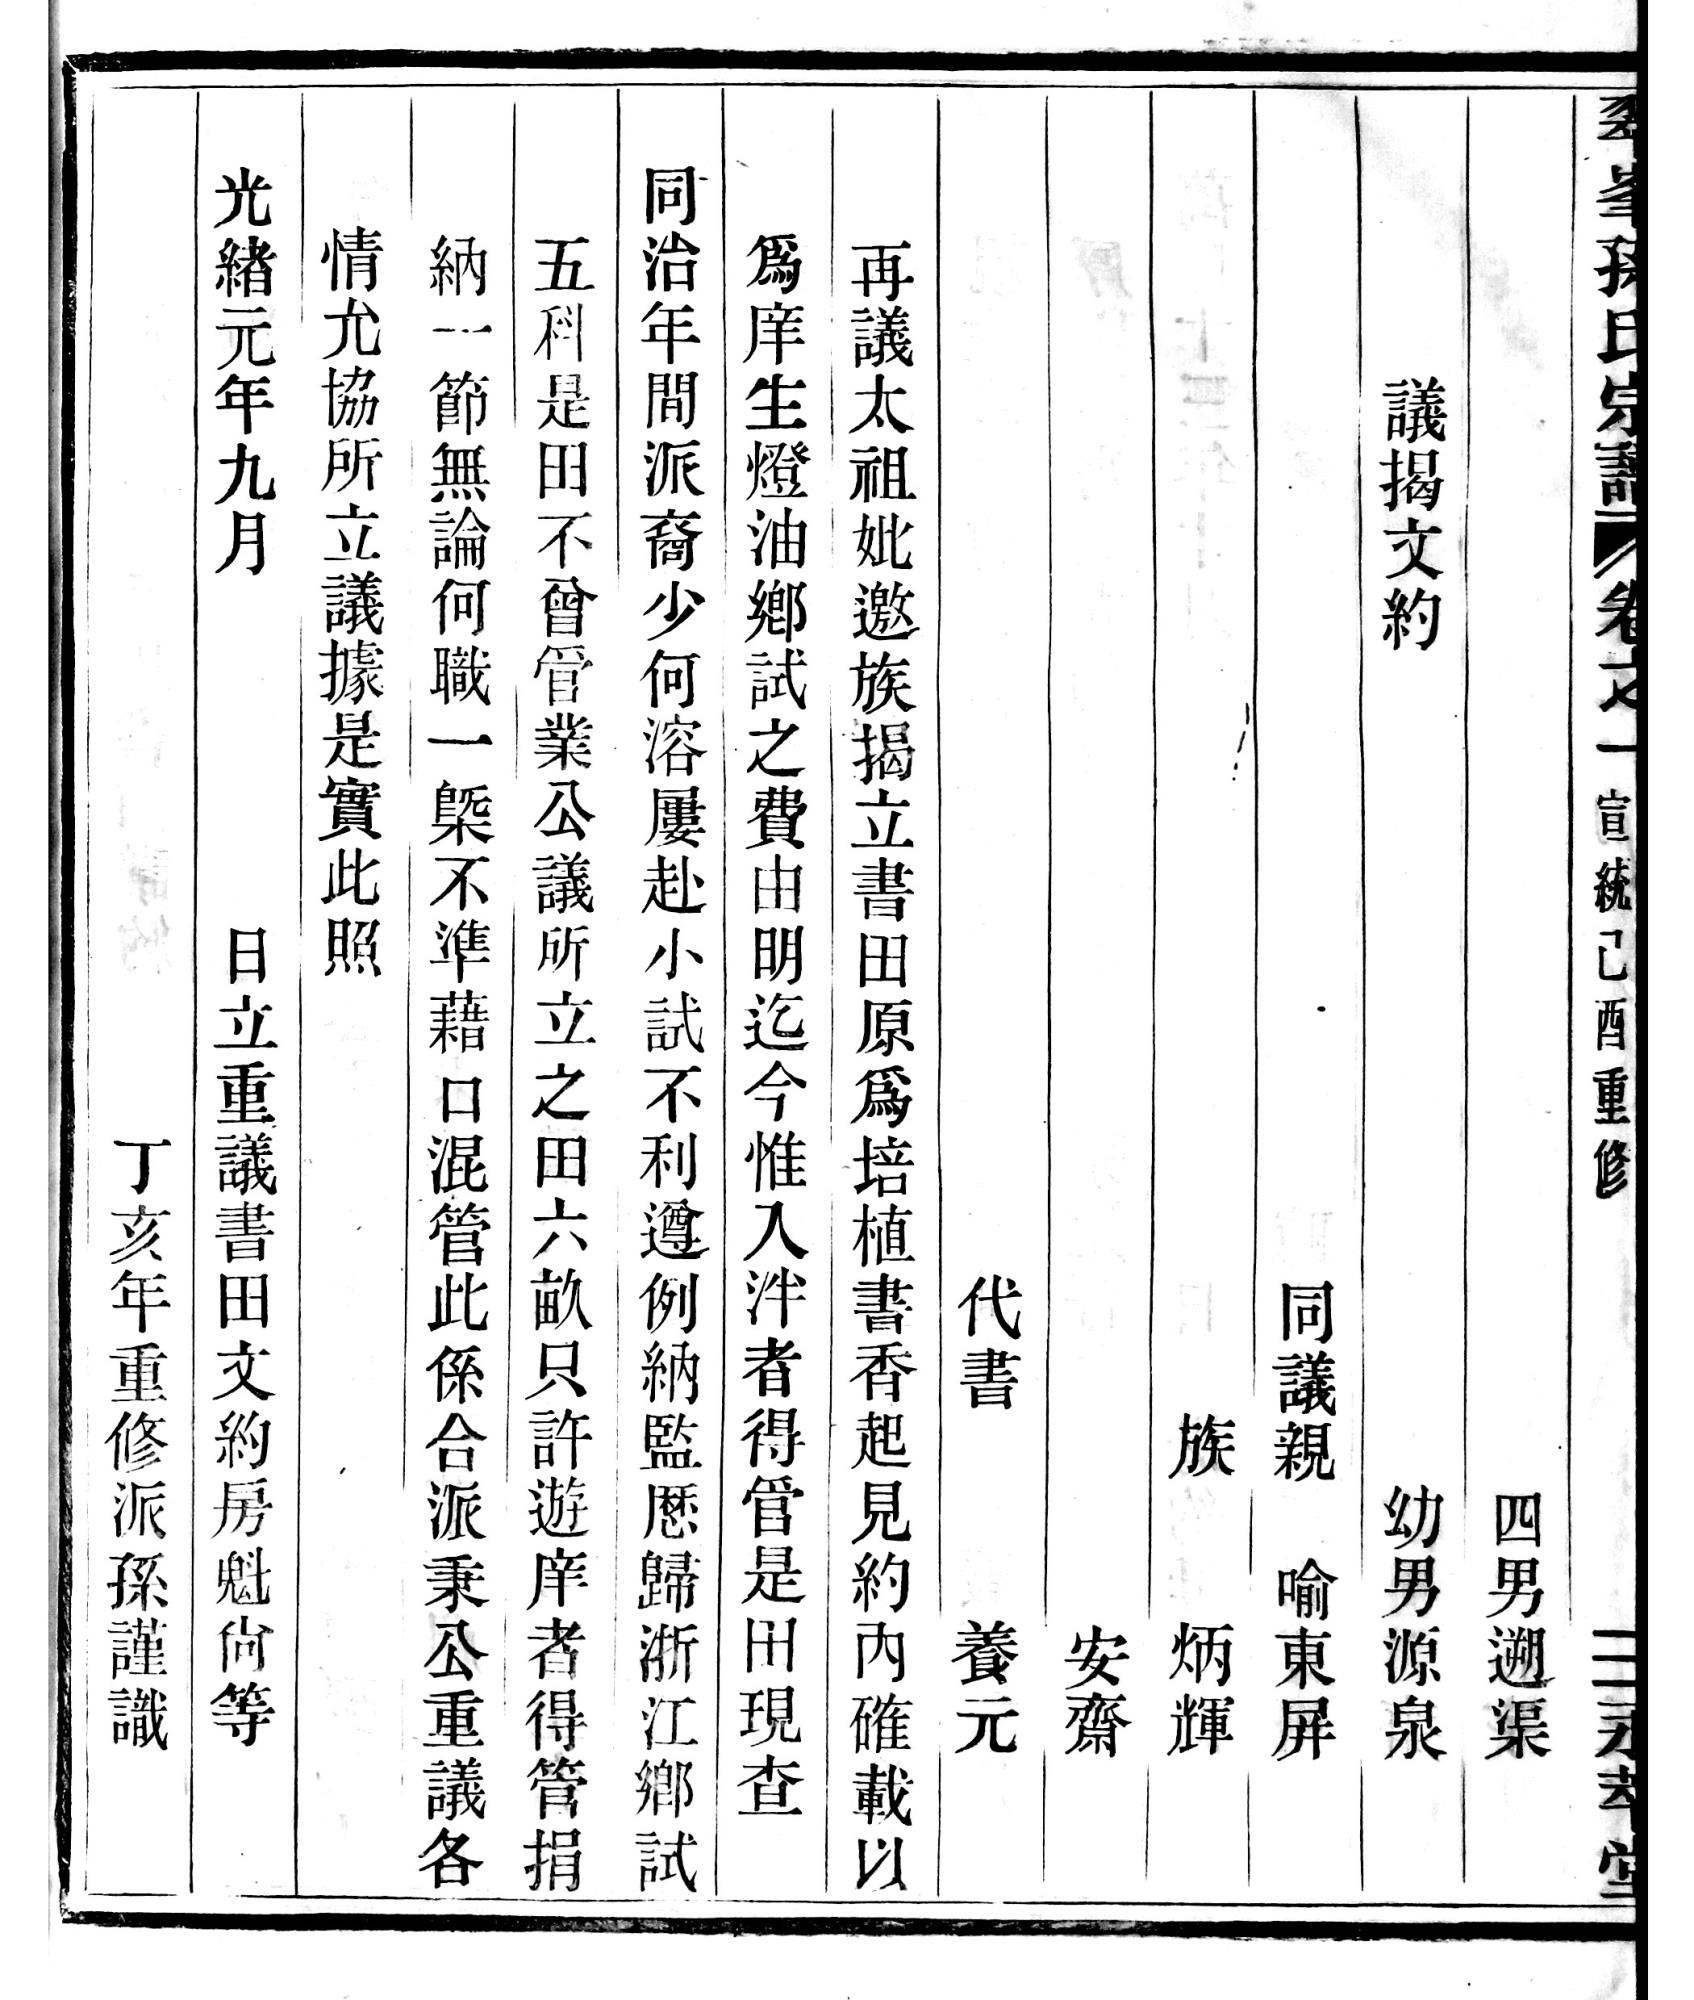 峯孫氏宗譜 卷之一 宣統己酉重修 二 永萃堂
四男遡渠
議揭文約 幼男源泉
同議親 喻東屏
族 炳輝
安齋
代書 養元
再議太祖妣邀族揭立書田原爲培植書香起見約內確載以
爲庠生燈油鄉試之費由明迄今惟入泮者得管是田現查
同治年間派裔少何溶屢赴小試不利遵例納監歷歸浙江鄉試
五科是田不曾管業公議所立之田六畝只許遊庠者得管捐
納一節無論何職一槩不準藉口混管此係合派秉公重議各
情允協所立議據是實此照
光緒元年九月 日立重議書田文約房魁尙等
丁亥年重修派孫謹識